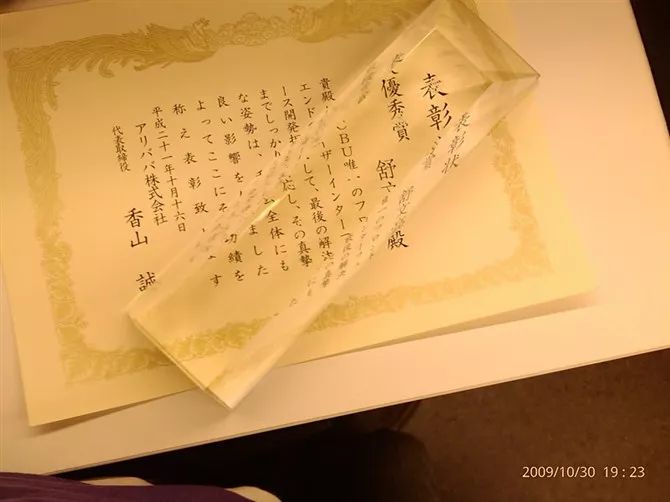 表彰状
表彰
優秀賞 舒 殿
貴殿 BU唯 のフロ
エンド ーザーインター
ース開発 して、最後の解決
までしっかり 応し、その真摯
な姿勢は、 ム全体にも
良い影響を ました
よってここにそ 功績を
称え表彰致 す
平成二十一年十月十六日
アリババ株式会社
代表取締役 香山 誠
2009/10/30 19:23